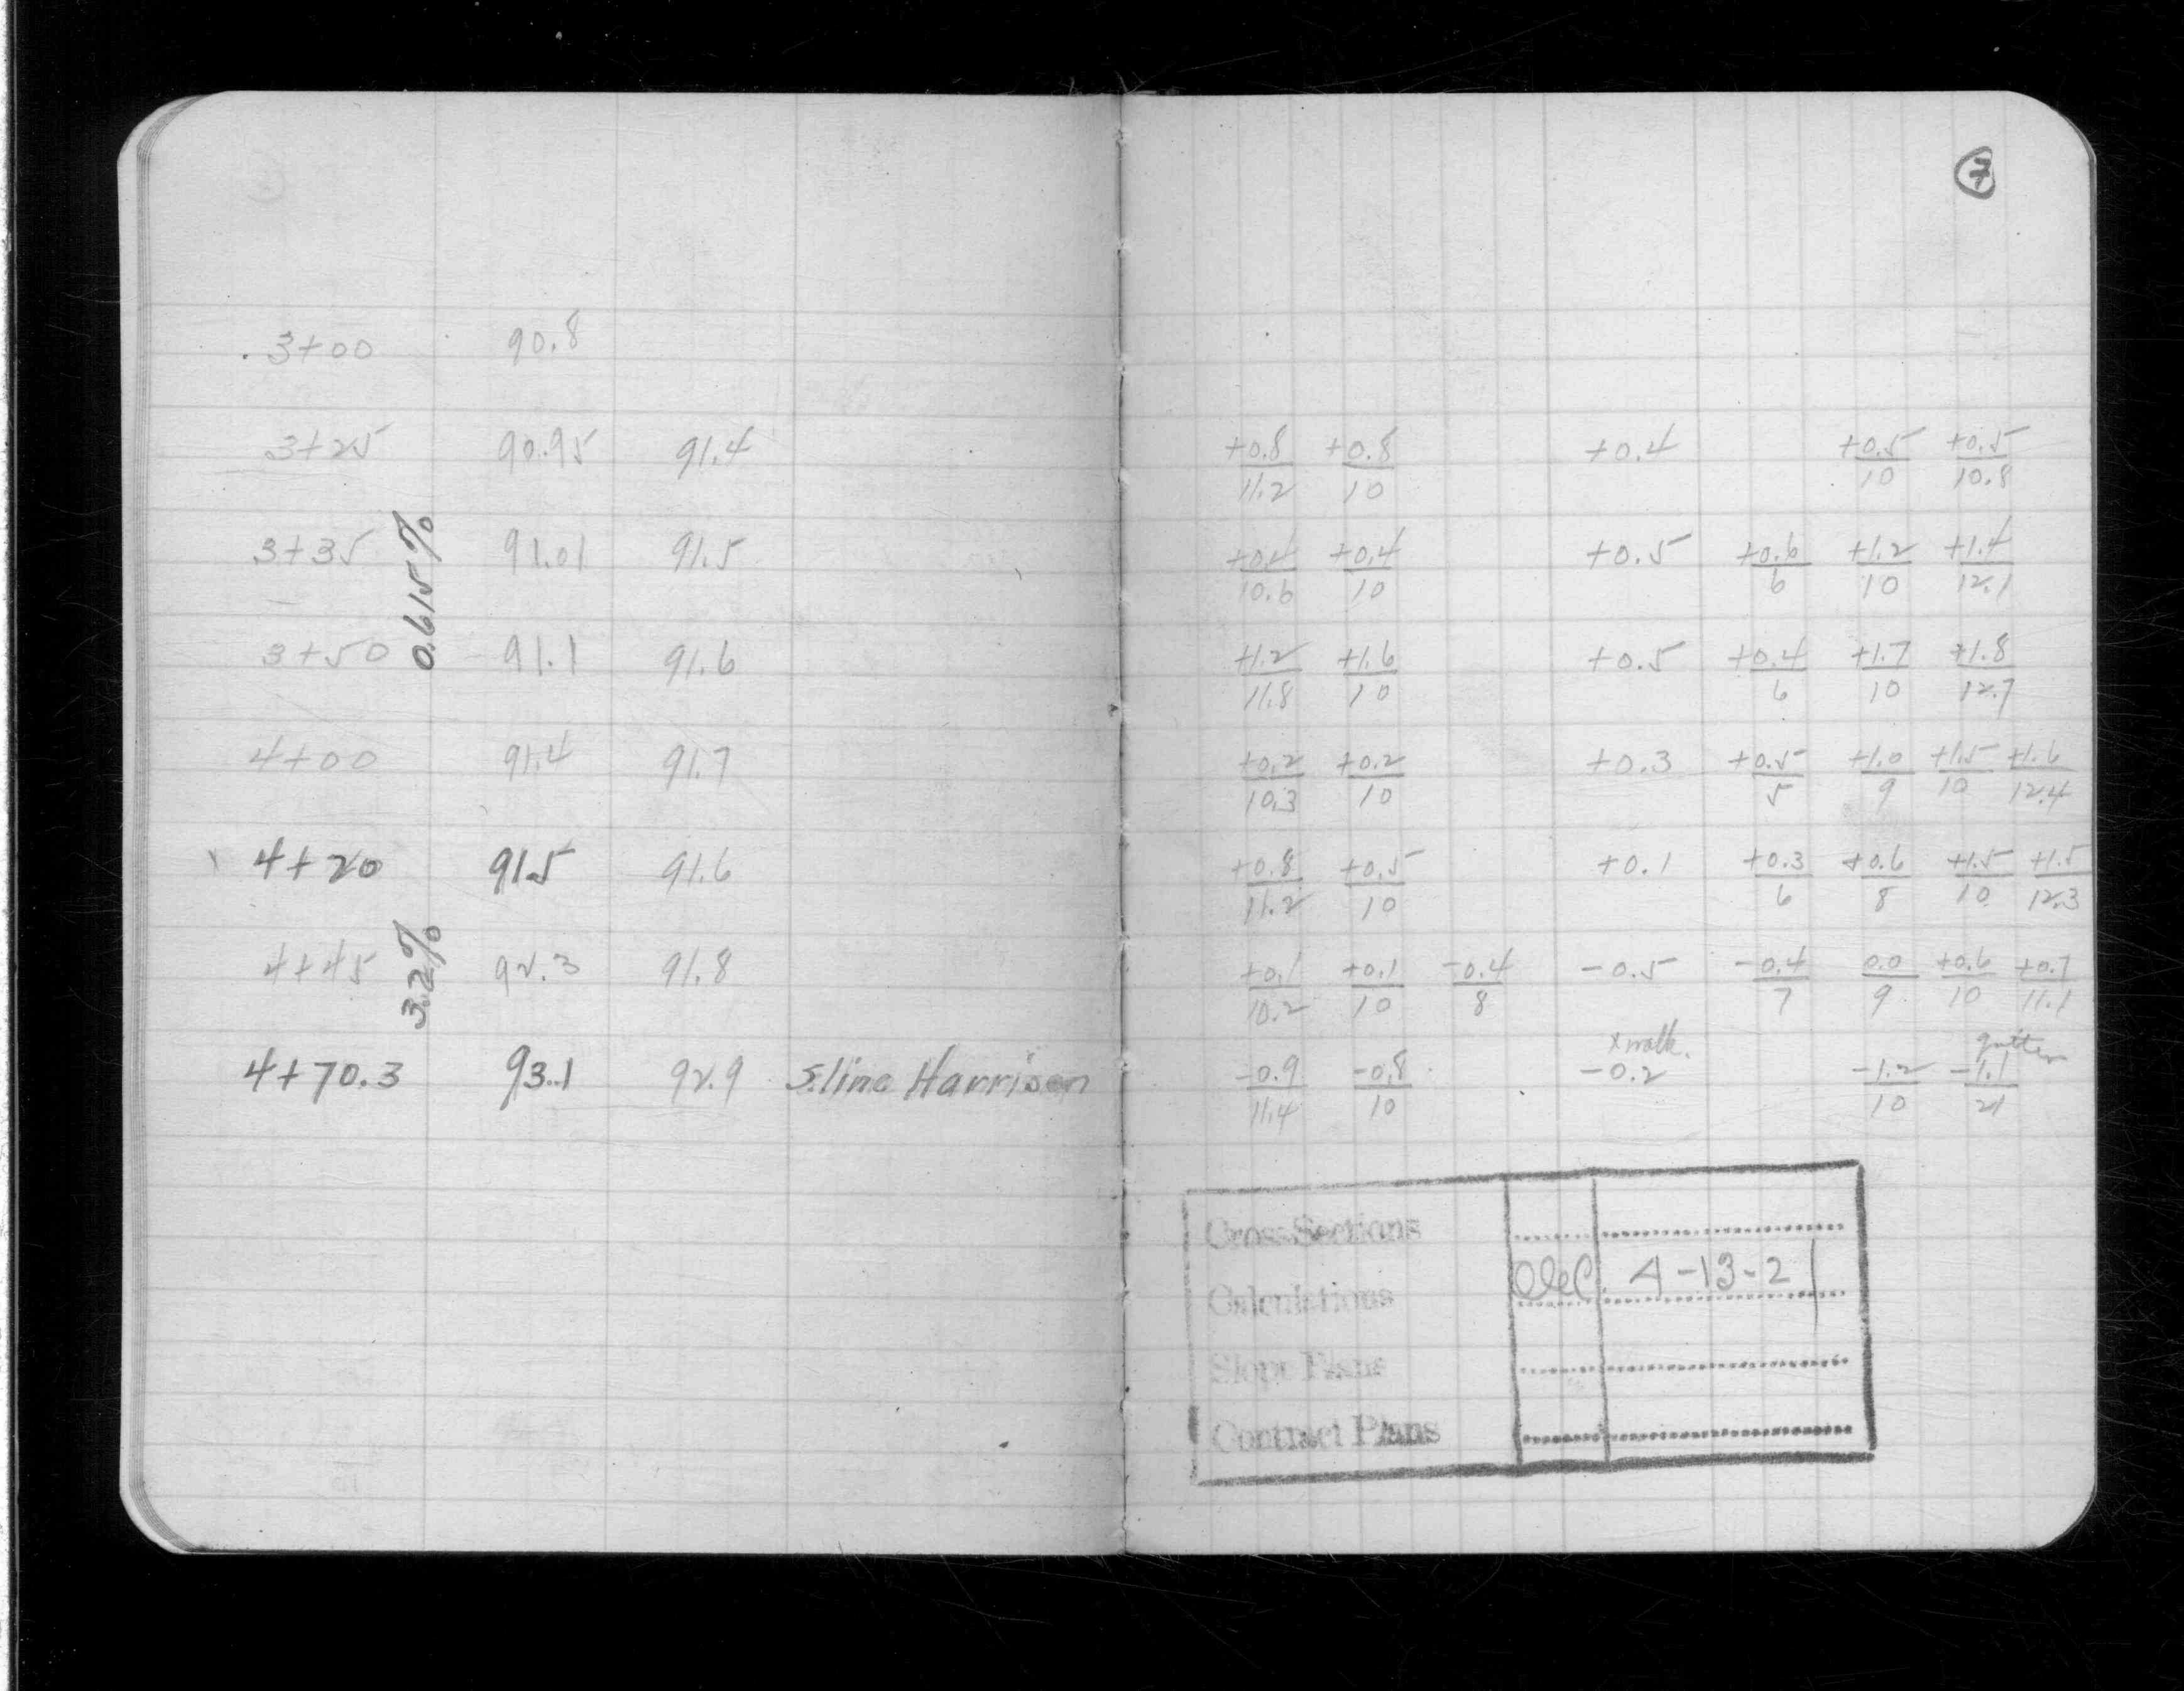 7
3+00 90.8
3+25 90.95 91.4 +0.8/11.2 +0.8/10 +0.4 +0.5/10 +0.5/10.8
0.615%
3+35 91.01 91.5 +0.4/10.6 +0.4/10 +0.5 +0.6/6 +1.2/10 +1.4/12.1
3+50 91.1 91.6 +1.2/11.8 +1.6/10 +0.5 +0.4/6 +1.7/10 +1.8/12.7
4+00 91.4 91.7 +0.2/10.3 +0.2/10 +0.3 +0.5/5 +1.0/9 +1.5/10 +1.6/12.4
4+20 91.5 91.6 +0.8/11.2 +0.5/10 +0.1 +0.3/6 +0.6/8 +1.5/10 +1.5/12.3
3.2%
4+45 92.3 91.8 +0.1/10.2 +0.1/10 -0.4/8 -0.5 -0.4/7 0.0/9 +0.6/10 +0.7/11.1
xwalk. gutter
4+70.3 93.1 92.9 S.line Harrison -0.9/11.4 -0.8/10 -0.2 -1.2/10 -1.1/21
Cross Sections
Calculations 4-13-21
Slope Plans
Contract Plans